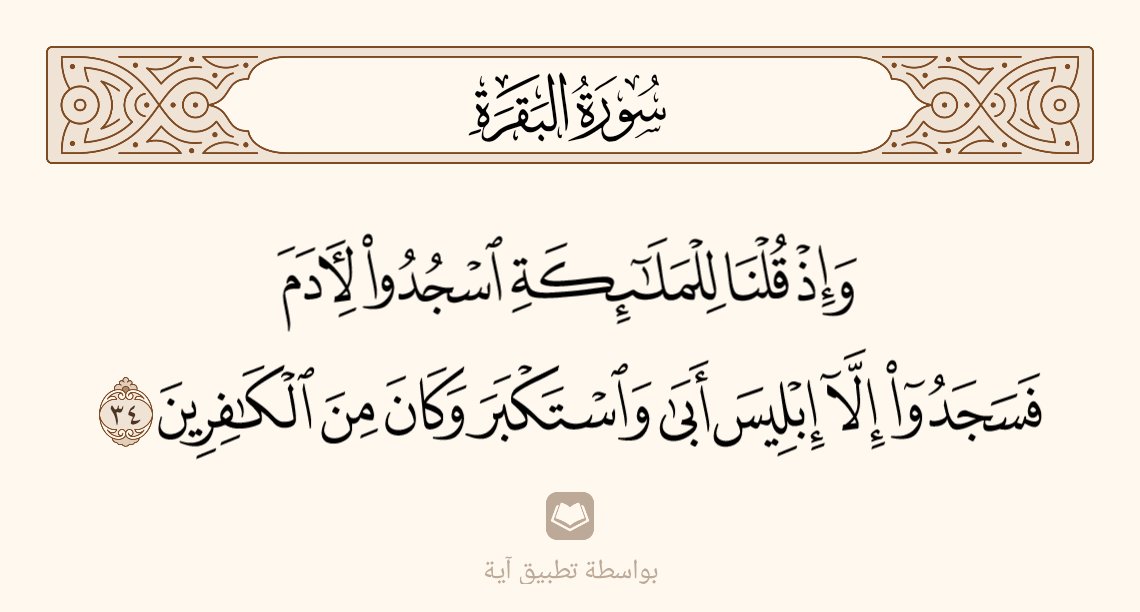 سُورَةُ البَقَرَةِ
وَإِذْ قُلْنَا لِلْمَلَـٰٓئِكَةِ ٱسْجُدُوا۟ لِـَٔادَمَ
فَسَجَدُوٓا۟ إِلَّآ إِبْلِيسَ أَبَىٰ وَٱسْتَكْبَرَ وَكَانَ مِنَ ٱلْكَـٰفِرِينَ ٣٤
بواسطة تطبيق آية